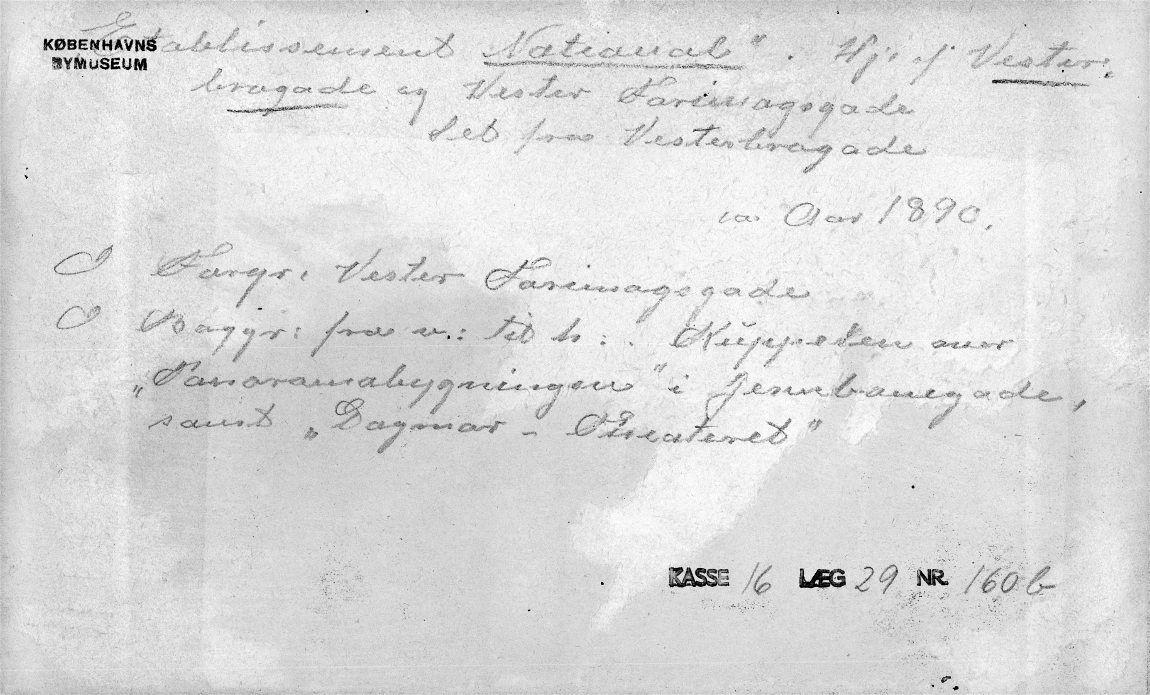 KØBENHAVNS
BYMUSEUM
Etablissement National". Hj: af Vester:
brogade og Vester Farimagsgade
Set fra Vesterbrogade
ca Aar 1890.
Forgr: Vester Farimagsgade
Baggr: fra v.: til h: . Kuppelen over
„Panoramabygningen" i Jernbanegade,
samt „Dagmar - Theateret"
KASSE 16 LÆG 29 NR. 160b